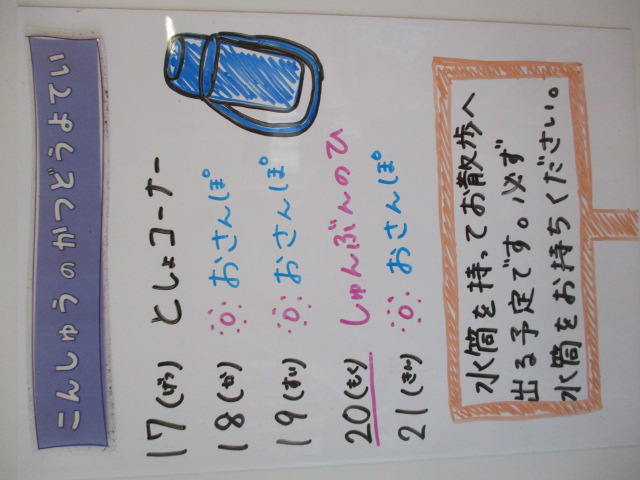 こんしゅうのかつどうよてい
17(げつ) としょコーナー
18(か) おさんぽ
19(すい) おさんぽ
20(もく) しゅんぶんのひ
21(きん) おさんぽ
水筒を持ってお散歩へ
出る予定です。必ず
水筒をお持ちください。